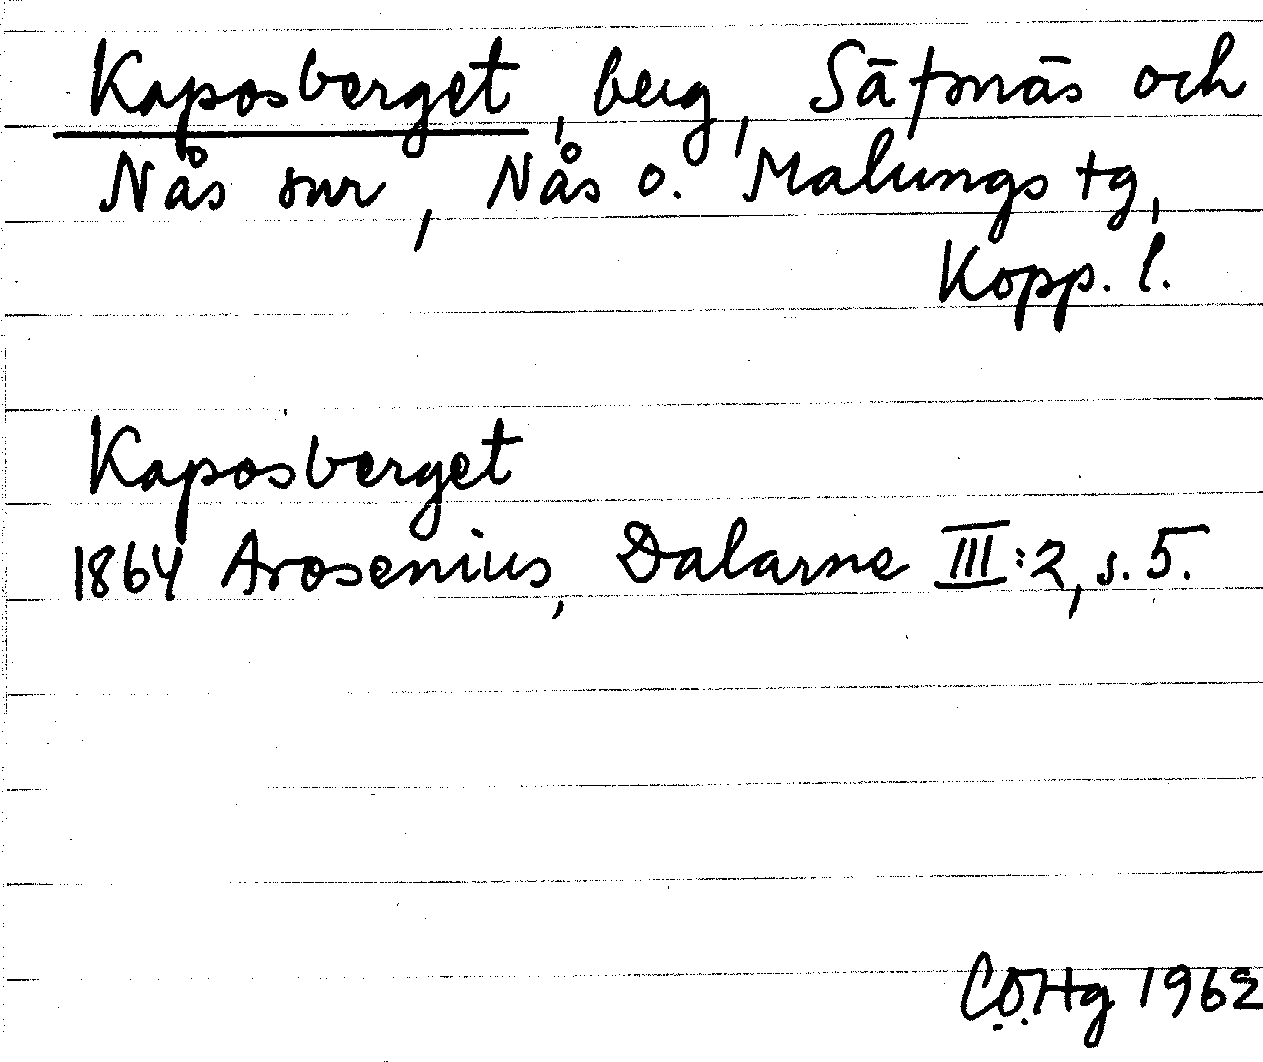 Kaposberget, berg, Säfsnäs och
Nås snr, Nås o. Malungs tg,
Kopp. l.
Kaposberget
1864 Arosenius, Dalarne III:2, s. 5.
C.O.Hg 1962